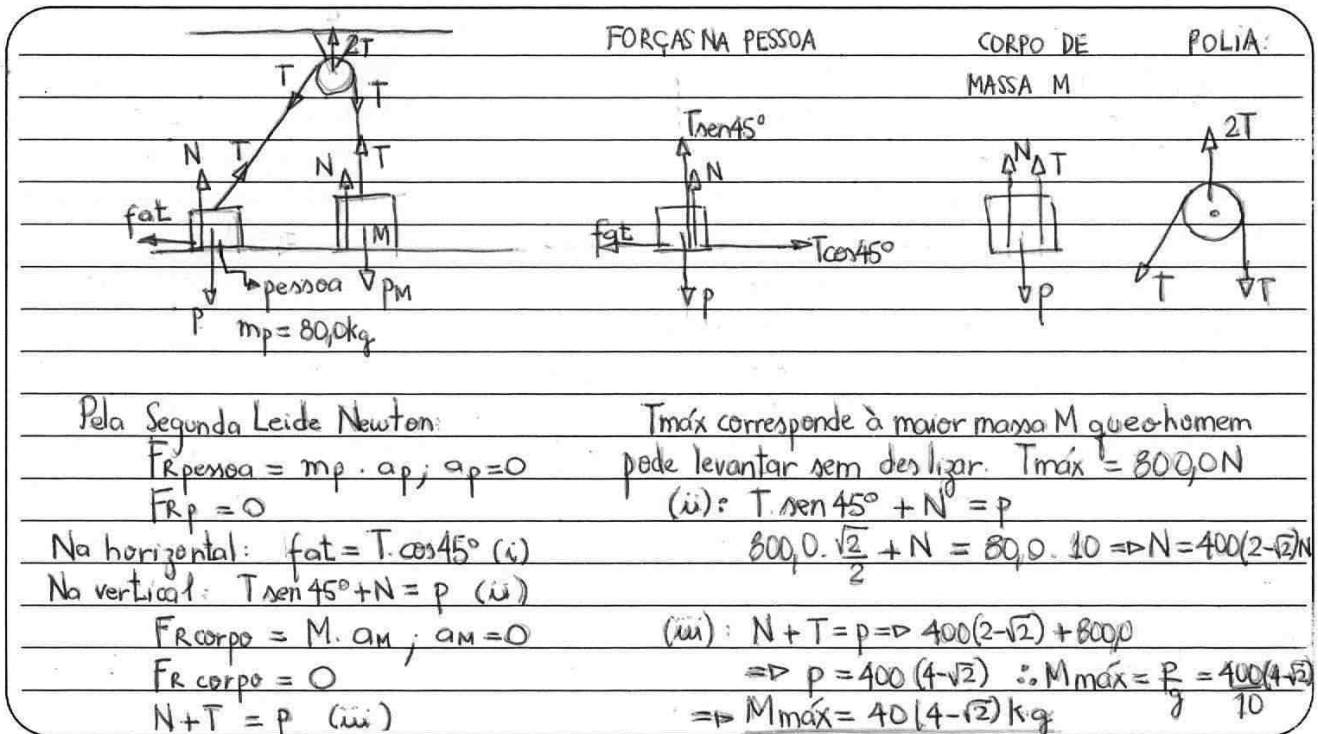 FORÇAS NA PESSOA
CORPO DE
MASSA M
POLIA:
2T
T
T
N
T
N
T
fat
M
pessoa
P
PM
mp = 80,0kg
Tsen45°
N
fat
Tcos45°
P
N T
P
2T
T
T
Pela Segunda Lei de Newton:
FRpessoa = mp . ap ; ap=0
FRp = 0
Na horizontal: fat = T. cos45° (i)
Na vertical: T sen 45° + N = p (ii)
FRcorpo = M. aM ; aM =0
FR corpo = 0
N+T = p (iii)
Tmáx corresponde à maior massa M que o homem
pode levantar sem deslizar. Tmáx = 800,0N
(ii): T. sen 45° + N = P
800,0. √2/2 + N = 80,0. 10 => N = 400(2-√2)N
(iii): N + T = p => 400(2-√2) + 800,0
=> p = 400 (4-√2) ∴ Mmáx = P/g = 400(4-√2)/10
=> Mmáx = 40(4-√2) kg